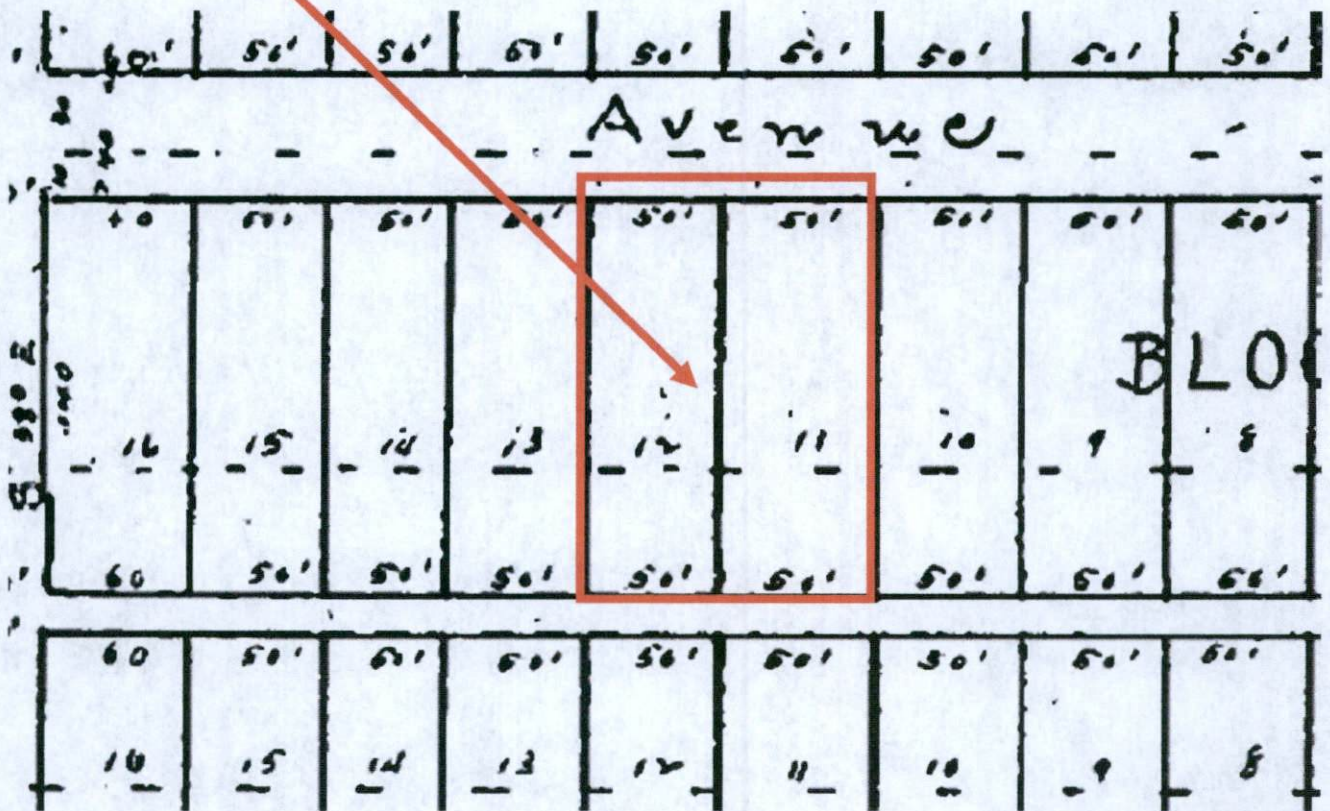 60' 50' 50' 50' 50' 50' 50' 50' 50'
Avenue
50' 50' 50' 50' 50' 50' 50'
BLO
16 15 14 13 12 11 10 9 8
60 50' 50' 50' 50' 50' 50' 50' 50'
60 50' 50' 50' 50' 50' 50' 50' 50'
16 15 14 13 12 11 10 9 8